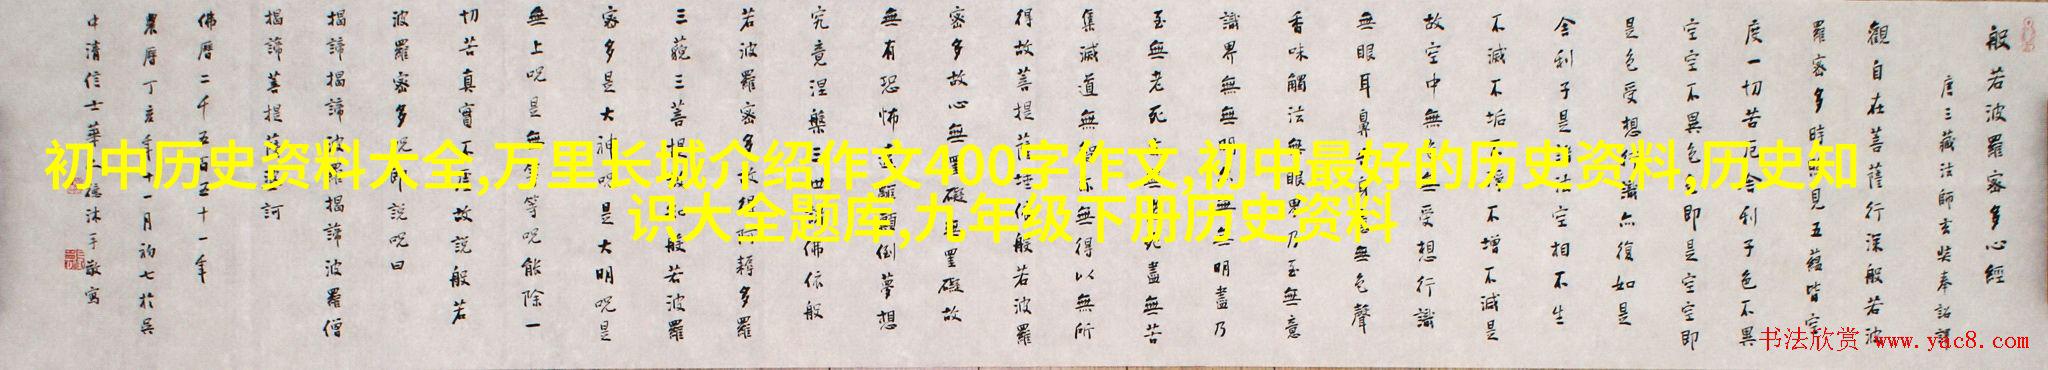 初中历史资料大全,万里长城介绍作文400字作文,初中最好的历史资料,历史知
识大全题库,九年级下册历史资料
般若波羅蜜多心經
唐三藏法師玄奘奉詔譯
觀自在菩薩行深般若波
羅蜜多時照見五蘊皆空
度一切苦厄舍利子色不異
空空不異色色即是空空即
是色受想行識亦復如是
舍利子是諸法空相不生
不滅不垢不淨不增不減是
故空中無色無受想行識
無眼耳鼻舌身意無色聲
香味觸法無眼界乃至無意
識界無無明亦無無明盡乃
至無老死亦無老死盡無苦
集滅道無智亦無得以無所
得故菩提薩埵依般若波羅
蜜多故心無罣礙無罣礙故
無有恐怖遠離顛倒夢想
究竟涅槃三世諸佛依般
若波羅蜜多故得阿耨多羅
三藐三菩提故知般若波羅
蜜多是大神呪是大明呪是
無上呪是無等等呪能除一
切苦真實不虛故說般若
波羅蜜多呪即說呪曰
揭諦揭諦波羅揭諦波羅僧
揭諦菩提薩婆訶
佛曆二千五百五十一年
農曆丁亥年十一月初七於吳
中清信士華德沐手敬寫
书法欣赏 www.yac8.com